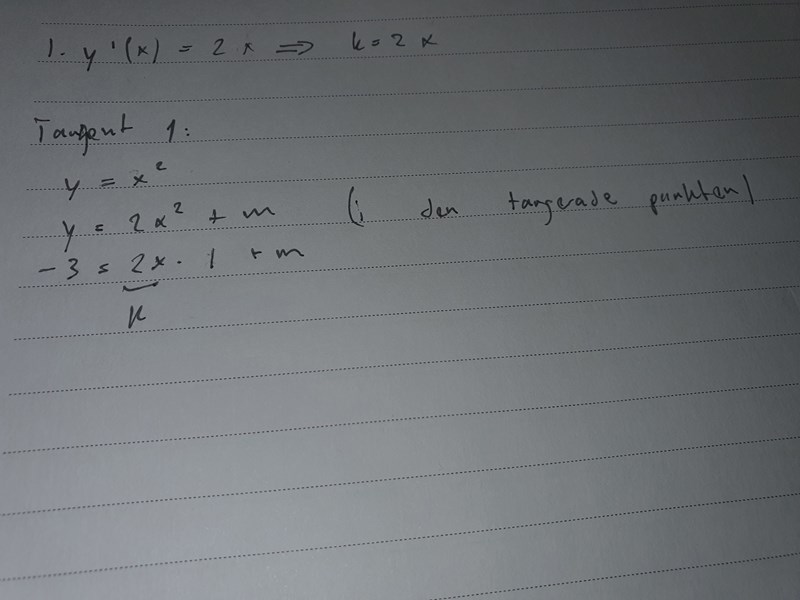 1. y'(x) = 2x => k = 2x
Tangent 1:
y = x²
y = 2x² + m (i den tangerade punkten)
-3 = 2x · 1 + m
k